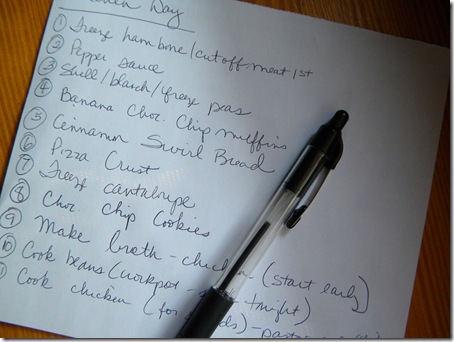 Day
① Freeze ham bone/cut off meat 1st
② Pepper sauce
③ Shell/blanch/freeze peas
④ Banana Choc. Chip muffins
⑤ Cinnamon Swirl Bread
⑥ Pizza Crust
⑦ Freeze cantalope
⑧ Choc. Chip Cookies
⑨ Make broth - (start early)
⑩ Cook beans (
Cook chicken (for